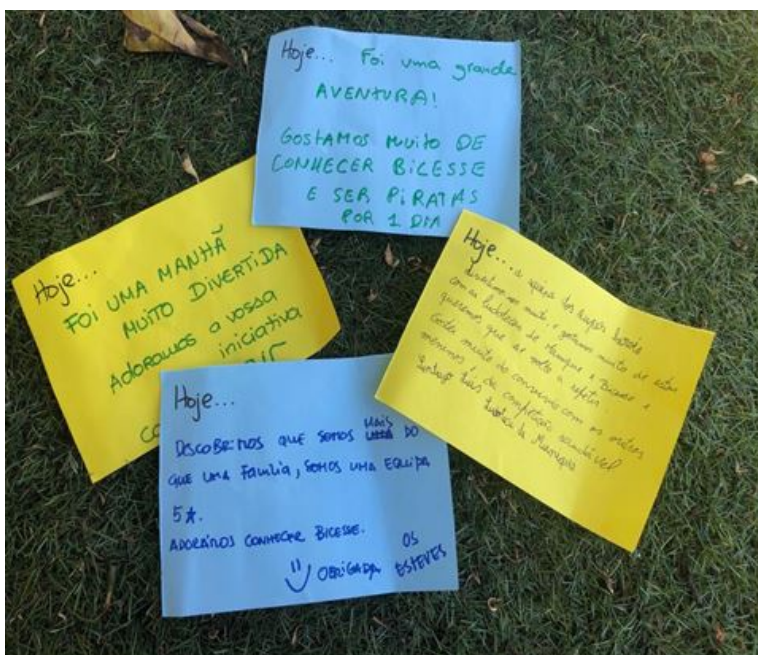 Hoje... Foi uma grande
AVENTURA!
GOSTAMOS MUITO DE
CONHECER BICESSE
E SER PIRATAS
POR 1 DIA
Hoje...
FOI UMA MANHÃ
MUITO DIVERTIDA
ADORAMOS a vossa
iniciativa
Hoje... a equipa dos
muito e gostamos muito de estar
com as de e Bicesse e
queremos que se volte a repetir.
Gostei muito do convívio com os outros
meninos e da competição saudável
Hoje...
DESCOBRIMOS QUE SOMOS MAIS DO
QUE UMA FAMÍLIA, SOMOS UMA EQUIPA
5★.
ADORÁMOS CONHECER BICESSE.
OBRIGADA OS
ESTEVES